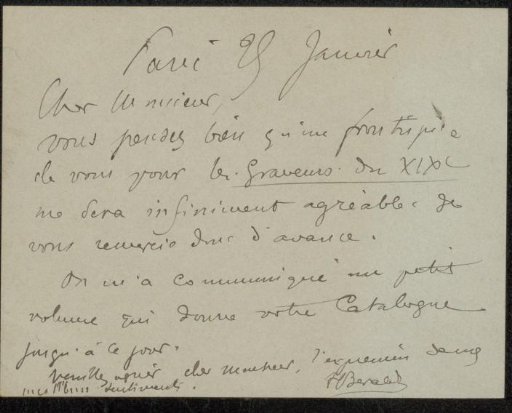 Paris 25 Janvier
Cher Monsieur,
vous pensez bien qu'un frontispice
de vous pour les Graveurs du XIXe
me sera infiniment agréable. Je
vous remercie donc d'avance.
On m'a communiqué un petit
volume qui donne votre Catalogue
jusqu'à ce jour.
Veuillez agréer cher monsieur, l'expression de mes
meilleurs sentiments.
H Beraldi